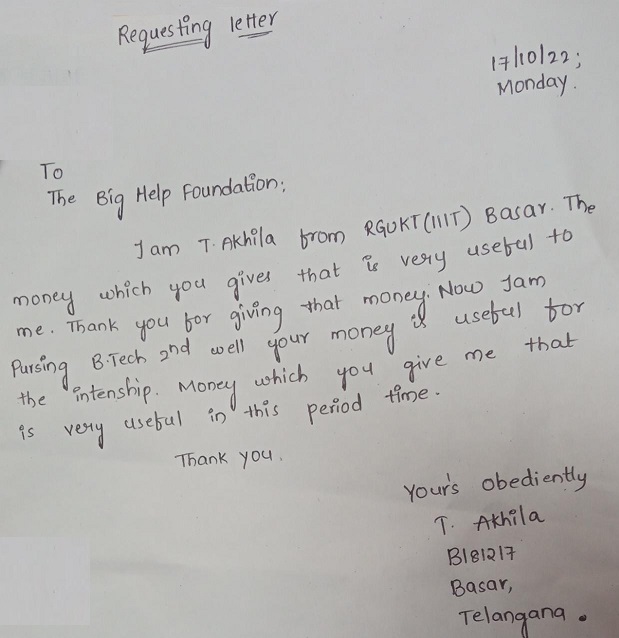 Requesting letter
17/10/22;
Monday.
To
The Big Help Foundation;
I am T. Akhila from RGUKT(IIIT) Basar. The
money which you gives that is very useful to
me. Thank you for giving that money. Now Iam
Pursing B.Tech 2nd well your money is useful for
the intenship. Money which you give me that
is very useful in this period time.
Thank you.
Your's obediently
T. Akhila
B181217
Basar,
Telangana.